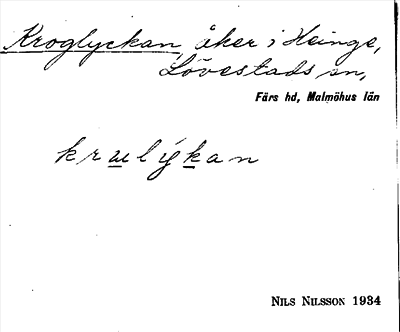 Kroglyckan, åker i Heinge,
Lövestads sn,
Färs hd, Malmöhus län
krulýkan
NILS NILSSON 1934